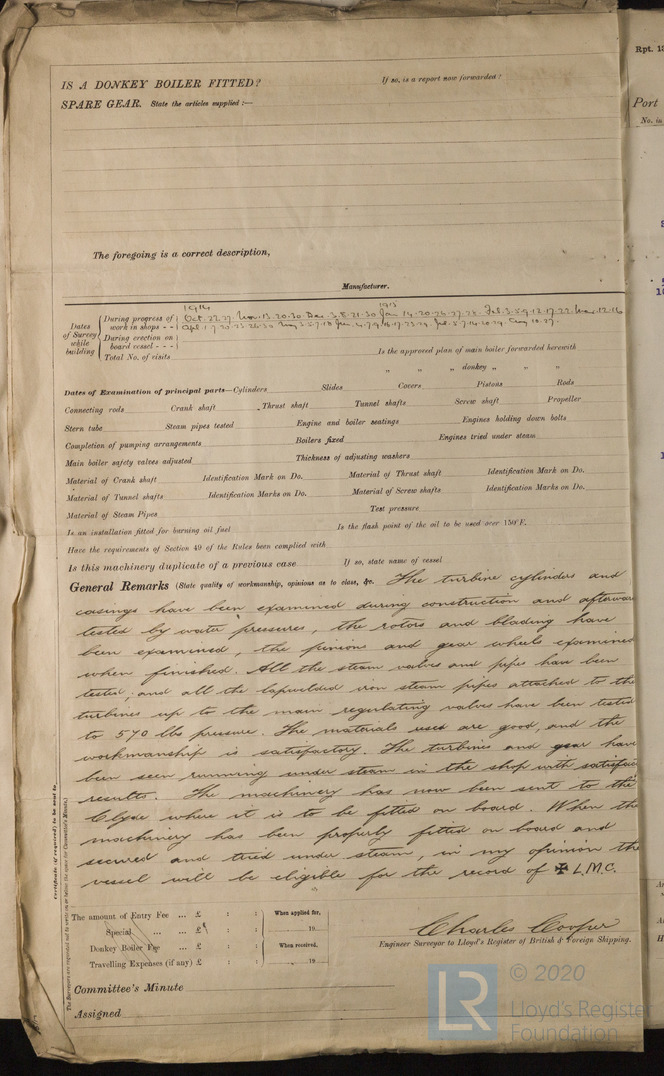 IS A DONKEY BOILER FITTED? If so, is a report now forwarded?
SPARE GEAR. State the articles supplied :—
The foregoing is a correct description,
Manufacturer.
1914 1915
Dates of Survey while building
During progress of work in shops - -
Oct. 22. 27. Nov. 13. 20. 30. Dec. 3. 8. 21. 30 Jan 14. 20. 26. 27. 28. Feb. 3. 5. 9. 12. 17. 22. Mar. 12. 16
Apl. 1. 7. 20. 23. 26. 30 May 3. 5. 7. 18 Jun.
During erection on board vessel - - -
Total No. of visits
Is the approved plan of main boiler forwarded herewith
" " " donkey " " "
Dates of Examination of principal parts—Cylinders Slides Covers Pistons Rods
Connecting rods Crank shaft Thrust shaft Tunnel shafts Screw shaft Propeller
Stern tube Steam pipes tested Engine and boiler seatings Engines holding down bolts
Completion of pumping arrangements Boilers fixed Engines tried under steam
Main boiler safety valves adjusted Thickness of adjusting washers
Material of Crank shaft Identification Mark on Do. Material of Thrust shaft Identification Mark on Do.
Material of Tunnel shafts Identification Marks on Do. Material of Screw shafts Identification Marks on Do.
Material of Steam Pipes Test pressure
Is an installation fitted for burning oil fuel Is the flash point of the oil to be used over 150°F.
Have the requirements of Section 49 of the Rules been complied with
Is this machinery duplicate of a previous case If so, state name of vessel
General Remarks (State quality of workmanship, opinions as to class, &c. The turbine cylinders and
casings have been examined during construction and afterward
tested by water pressures, the rotors and blading have
been examined, the pinions and gear wheels examined
when finished. All the steam valves and pipes have been
tested, and all the lapwelded iron steam pipes attached to the
turbines up to the main regulating valves have been tested
to 570 lbs pressure. The materials used are good, and the
workmanship is satisfactory. The turbines and gear have
been seen running under steam in the shop with satisfac
results. The machinery has now been sent to the
Clyde where it is to be fitted on board. When the
machinery has been properly fitted on board and
secured and tried under steam, in my opinion the
vessel will be eligible for the record of ✠ L.M.C.
Certificate (if required) to be sent to
The Surveyors are requested not to write on or below the space for Committee's Minute.
The amount of Entry Fee ... £ : : When applied for,
Special ... ... £ : : 19
Donkey Boiler Fee ... £ : : When received,
Travelling Expenses (if any) £ : : 19
Charles Cooper
Engineer Surveyor to Lloyd's Register of British & Foreign Shipping.
Committee's Minute
Assigned
Rpt. 13
Port
No. in
LR © 2020
Lloyd's Register
Foundation